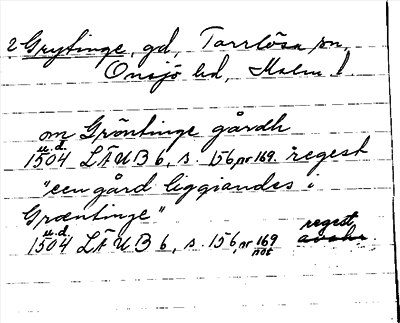 2 Grytinge, gd, Torrlösa sn,
Onsjö hd, Malm. l.
om Gröntinge gårdh
u.d.
1504 LÄUB 6, s. 156, nr 169. regest
"een gård liggiandes i
Grœntinge"
u.d. regest
1504 LÄUB 6, s. 156, nr 169 not